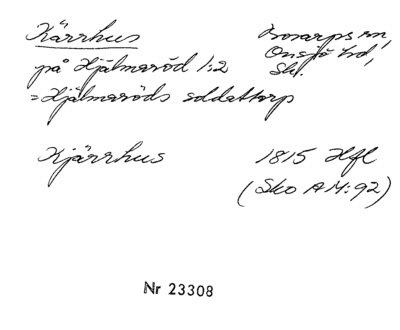 Kärrhus
Bosarps sn,
Onsjö hd,
Sk.
på Hjälmaröd 1:2
=Hjälmaröds soldattorp
Kjärrhus
1815 Hfl
(Sko AM:92)
Nr 23308